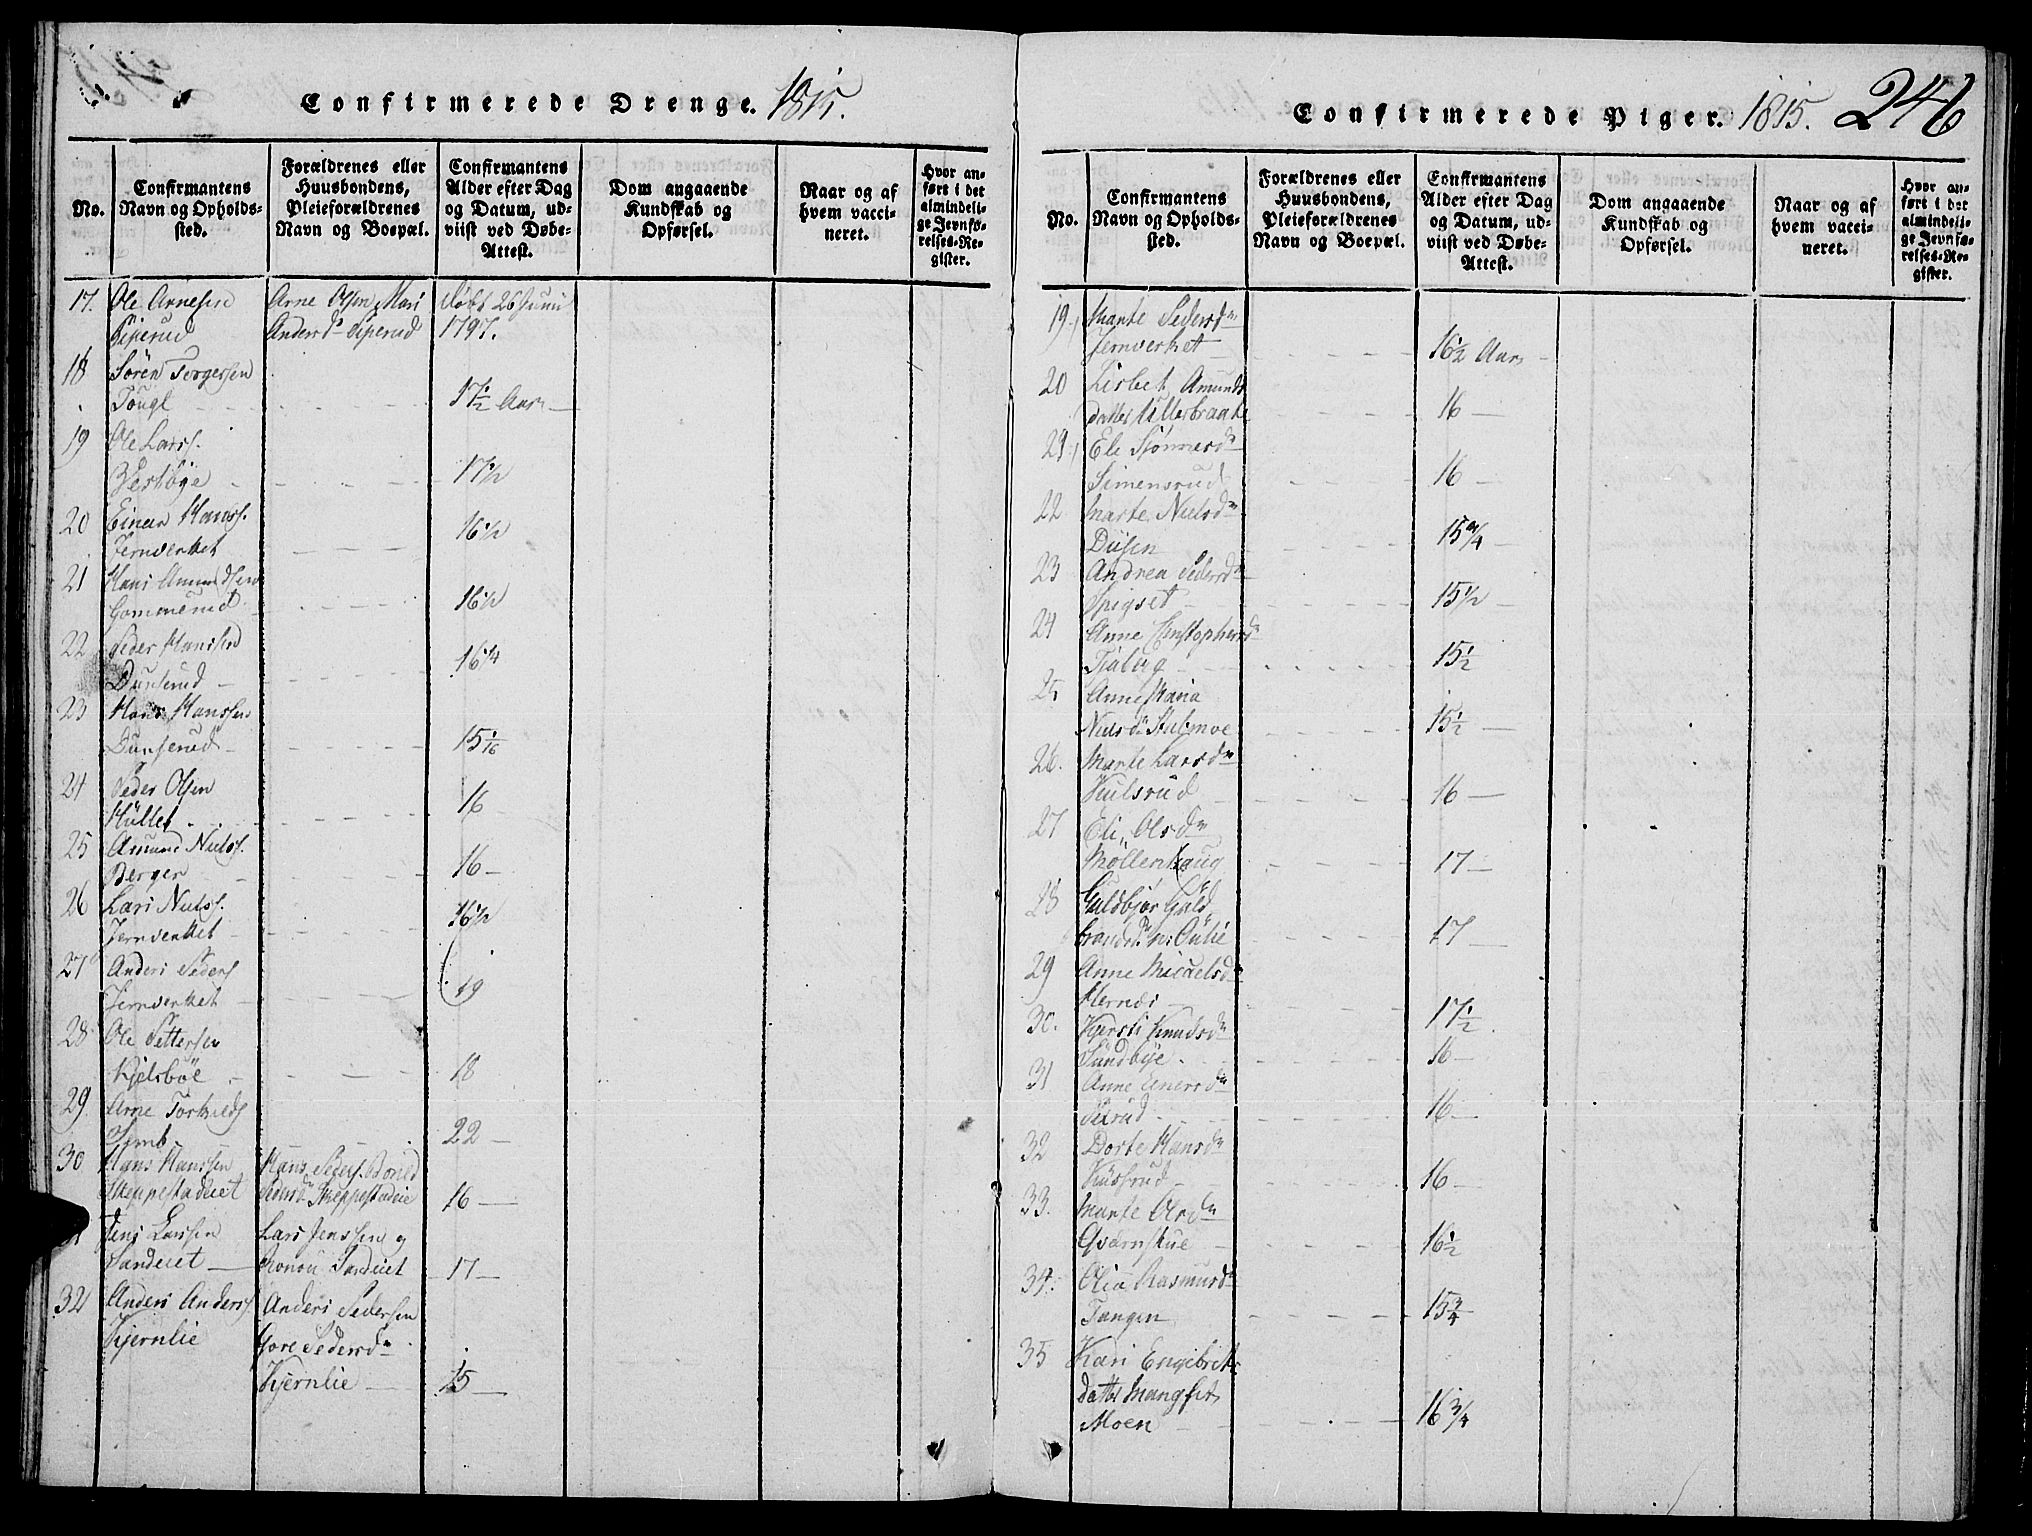 Confirmerede Drenge. 1815.
No.
Confirmantens Navn og Opholds-sted.
Forældrenes eller Huusbondens, Pleieforældrenes Navn og Boepæl.
Confirmantens Alder efter Dag og Datum, ud-viist ved Døbe-Attest.
Dom angaaende Kundskab og Opførsel.
Naar og af hvem vacci-neret.
Hvor an-ført i det almindeli-ge Jevnfø-relses-Re-gister.
17. Ole Arnesen Arne Olsen Mari døbt 26 Juni
Anders d. 1797.
18 Sören Torgersen
17½ Aar
19 Ole Larss.
17½
20 Einar Hanss.
Jernverket 16½
21 Hans Amundsen
Gommerud 16½
22 Peder Hanssen
Dunserud 16¼
23 Hans Hanssen
Dunserud 15 1/16
24 Peder Olsen
Hullet 16
25 Amund Nielss.
Berger 16
26 Lars Nielss.
Jernverket 16½
27 Anders Peders
Jernverket 19
28 Ole Pettersen
Kjelsböe 18
29 Arne Torkilds
22
30 Hans Hanssen Hans Peders.
Skeppestadeiet Skeppestadeie 16
Jens Larssen Lars Jenssen og
Sandeiet Sandeiet 17
32 Anders Anderss. Anders Pedersen
Kjernlie Gore Pedersd.
Kjernlie 15
Confirmerede Piger. 1815. 246
No.
Confirmantens Navn og Opholds-sted.
Forældrenes eller Huusbondens, Pleieforældrenes Navn og Boepæl.
Confirmantens Alder efter Dag og Datum, ud-viist ved Døbe-Attest.
Dom angaaende Kundskab og Opførsel.
Naar og af hvem vacci-neret.
Hvor an-ført i det almindeli-ge Jevnfø-relses-Re-gister.
19. Marte Pedersdr
Jernverket 16½ Aar
20 Lisbet Amunds
datter Ullerbraate 16
21. Eli
Simensrud 16
22 Marte Nielsdr
15¾
23 Andrea Pedersdr
Spigset 15½
24 Anne Christophersd
15½
25 Anne Maria
Nielsdr Holmoe 15½
26. Marte Larsdr
Hulsrud 16
27 Eli Olsdr
Möllenhaug 17
28 Guldbjør Guld
brandsd. 17
29 Anne Micaelsdr
Hernæs 17½
30. Kjersti Knudsdr
Sundbye 16
31 Anne Einersdr
16
32 Dorte Hansdr
16
33. Marte Olsdr
Qvernstue 16½
34. Olia Rasmusdr
Tangen 15¾
35 Kari Engebrets
datter
Moen 16¾